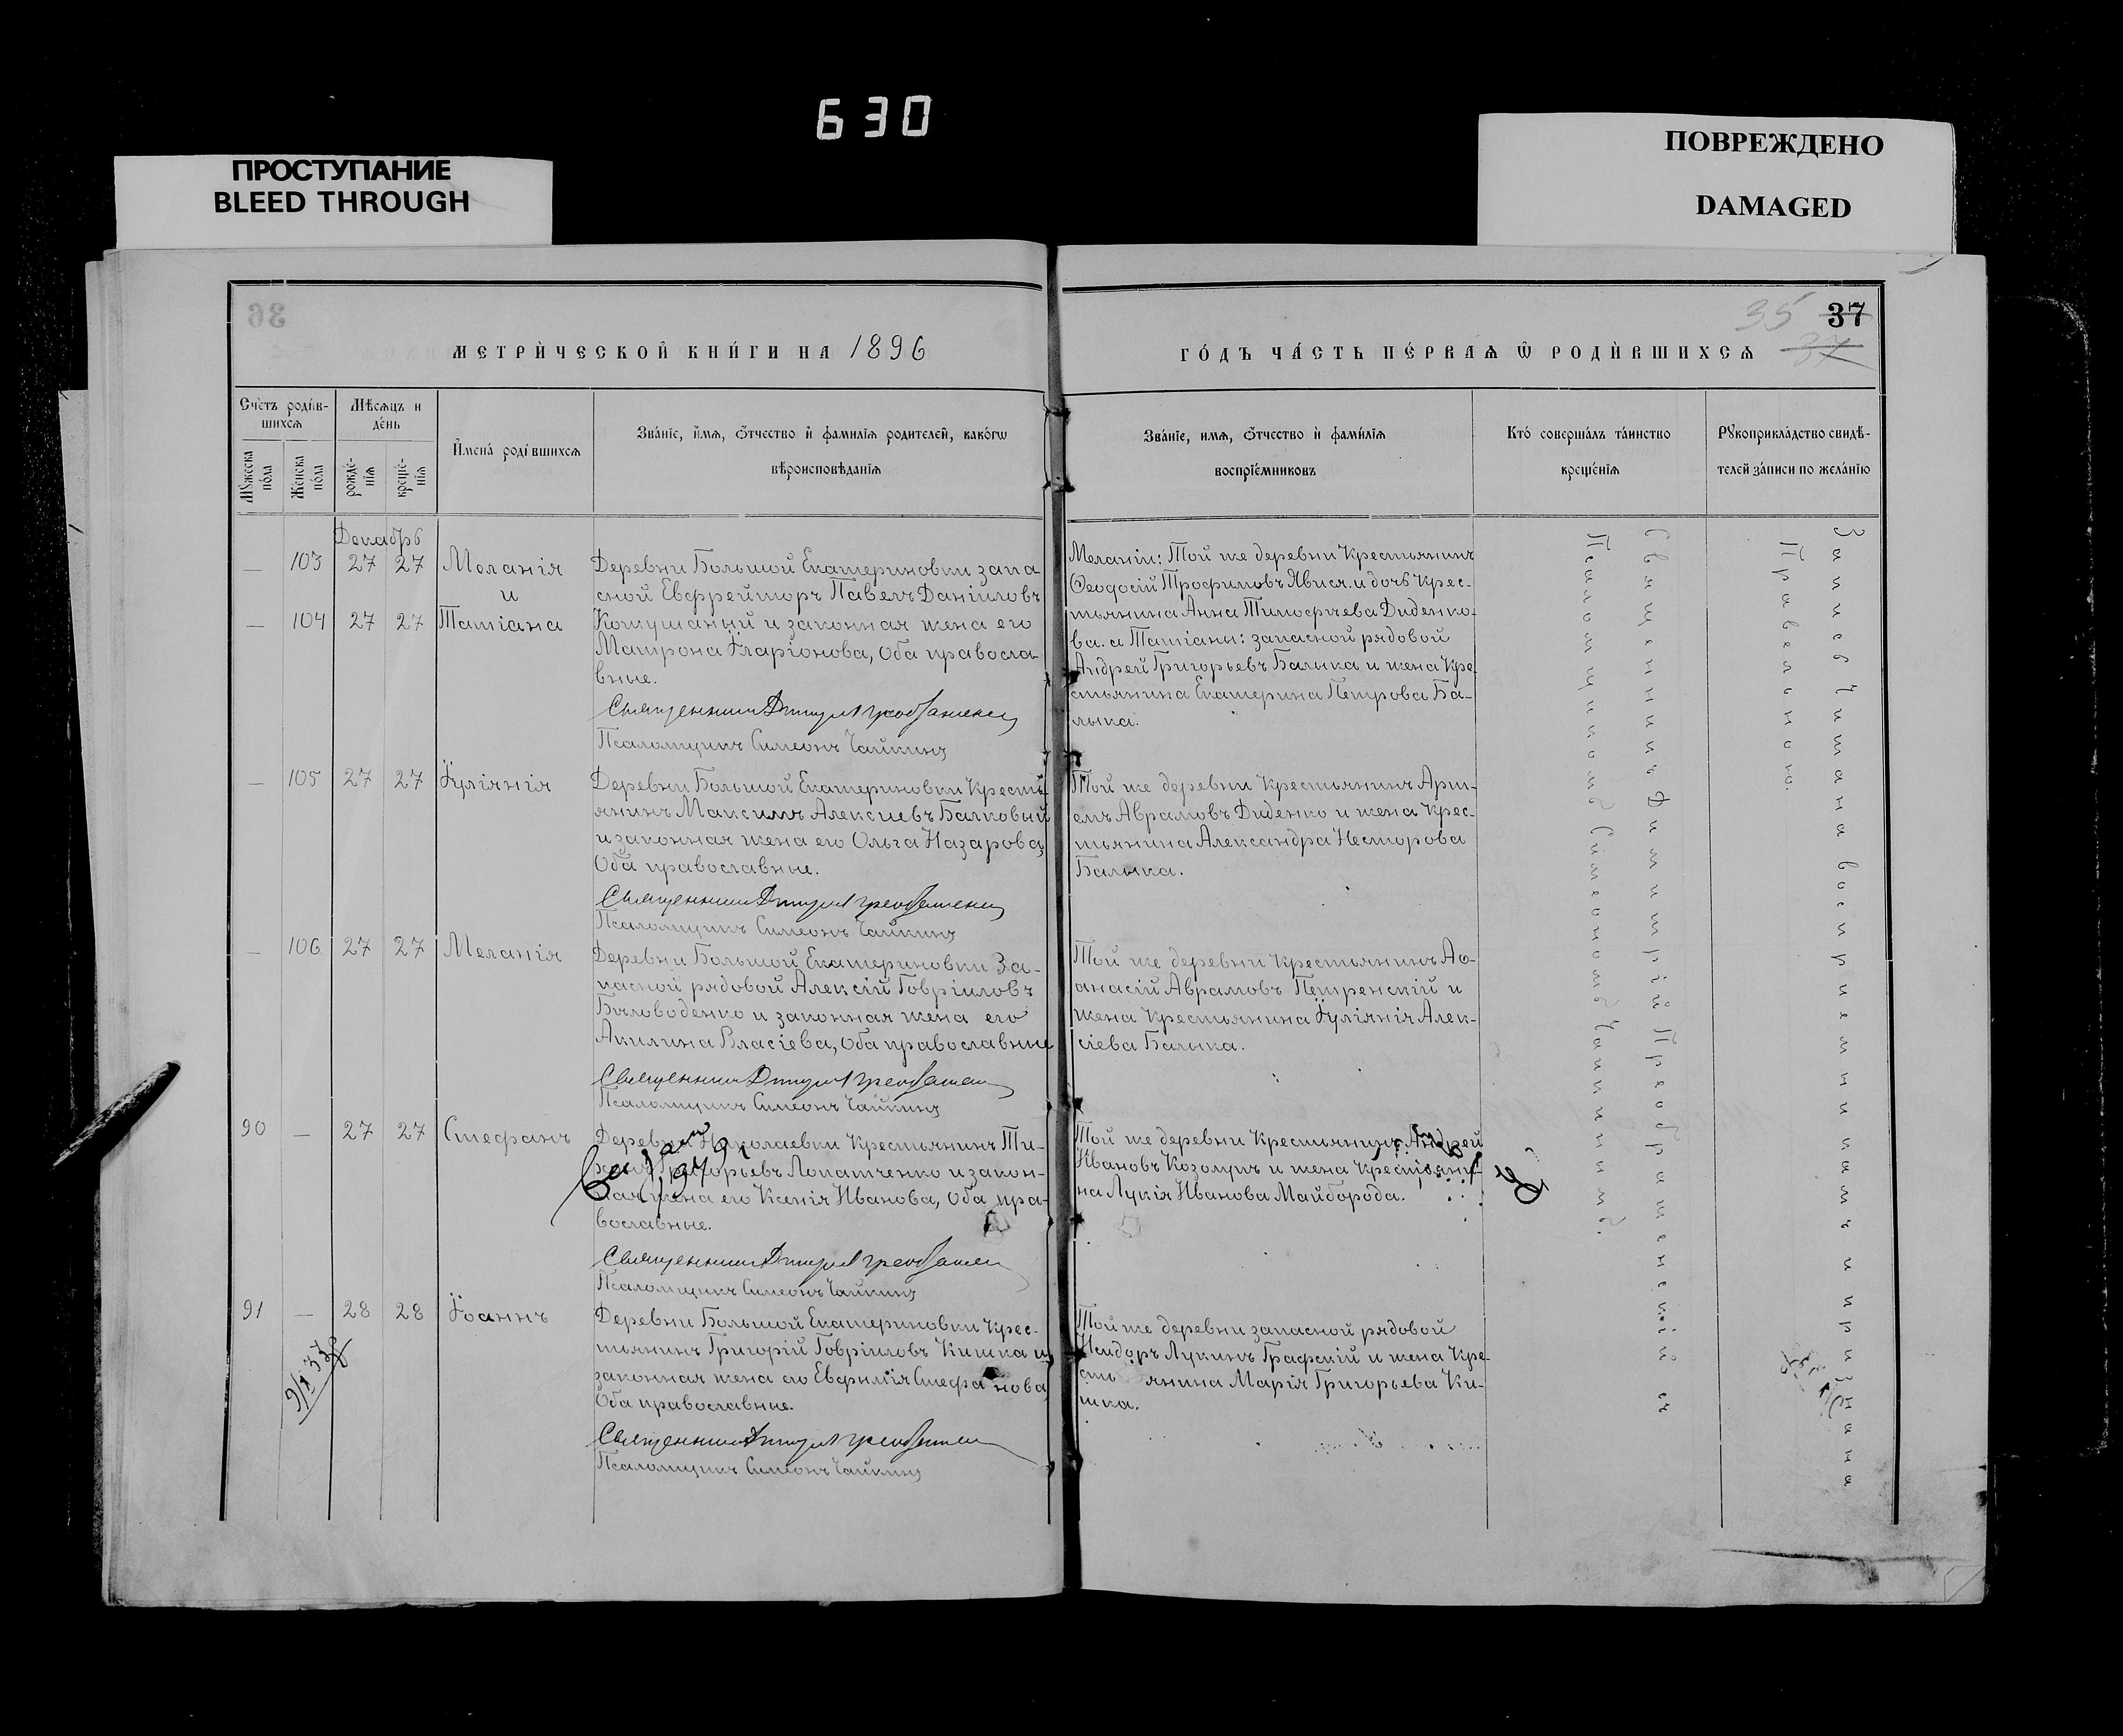 630
ПРОСТУПАНИЕ
BLEED THROUGH
ПОВРЕЖДЕНО
DAMAGED
36
35 37
37
МЕТРИ́ЧЕСКОЙ КНИ́ГИ НА 1896
ГО́ДЪ ЧА́СТЬ ПЕ́РВАѦ Ѡ РОДИ́ВШИХСѦ
Сче́тъ роди́в-
шихсѧ
Мѣ́сѧцъ и
де́нь
Мꙋ́жеска
по́ла
Же́нска
по́ла
рожде́-
нїѧ
креще́-
нїѧ
И҆мена̀ роди́вшихсѧ
Зва́нїе, и҆́мѧ, ѻ҆́тчество и҆ фами́лїѧ роди́телей, како́гѡ
вѣроисповѣ́данїѧ
Зва́нїе, и҆мѧ, ѻ҆́тчество и҆ фами́лїѧ
воспрїе́мниковъ
Кто̀ соверша́лъ та́инство
креще́нїѧ
Рꙋкоприкла́дство свидѣ́-
телей за́писи по жела́нїю
Декабрь
— 103 27 27 Меланія
и
— 104 27 27 Татіана
Деревни Большой Екатериновки запа
сной Ефрейторъ Павелъ Даніиловъ
Кокушаный и законная жена его
Матрона Іларіонова, оба правосла
вные.
Священникъ Димитрій Преображенскій
Псаломщикъ Симеонъ Чайкинъ
Меланіи: Той же деревни Крестьянинъ
Ѳеодосій Трофимовъ Явися и дочь Крес-
тьянина Анна Тимофѣева Диденко-
ва. а Татіаны: запасной рядовой
Андрей Григорьевъ Балыка и жена Кре
стьянина Екатерина Петрова Ба-
лыка.
— 105 27 27 Іуліанія
Деревни Большой Екатериновки Кресть
янинъ Максимъ Алексіевъ Балковый
и законная жена его Ольга Назарова,
Оба православные.
Священникъ Димитрій Преображенскій
Псаломщикъ Симеонъ Чайкинъ
Той же деревни Крестьянинъ Арте-
емъ Аврамовъ Диденко и жена Крес-
тьянина Александра Несторова
Балыка.
— 106 27 27 Меланія
Деревни Большой Екатериновки За-
пасной рядовой Алексій Гавріиловъ
Бѣловоденко и законная жена его
Акилина Власіева, оба православные
Священникъ Димитрій Преображенскій
Псаломщикъ Симеонъ Чайкинъ
Той же деревни Крестьянинъ Аѳ-
анасій Аврамовъ Петренскій и
жена Крестьянина Іуліанія Алек-
сіева Балыка.
90 — 27 27 Стефанъ
Деревни Николаевки Крестьянинъ Ти-
Григорьевъ Лопатченко и закон-
ная жена его Ксенія Иванова, Оба пра-
вославные.
Священникъ Димитрій Преображенскій
Псаломщикъ Симеонъ Чайкинъ
Той же деревни Крестьянинъ Андрей
Ивановъ Козолупъ и жена Крестьяни-
на Лукія Иванова Майборода.
91 — 28 28 Іоаннъ
Деревни Большой Екатериновки Крес-
тьянинъ Григорій Гавріиловъ Кишка и
законная жена его Евфимія Стефанова
Оба православные.
Священникъ Димитрій Преображенскій
Псаломщикъ Симеонъ Чайкинъ
Той же деревни запасной рядовой
Исидоръ Лукинъ Графскій и жена Кре-
стьянина Марія Григорьева Ки-
шка.
Священникъ Димитрій Преображенскій съ
Псаломщикомъ Симеономъ Чайкинымъ.
Запись читана воспріемникамъ и признана
Правельною.